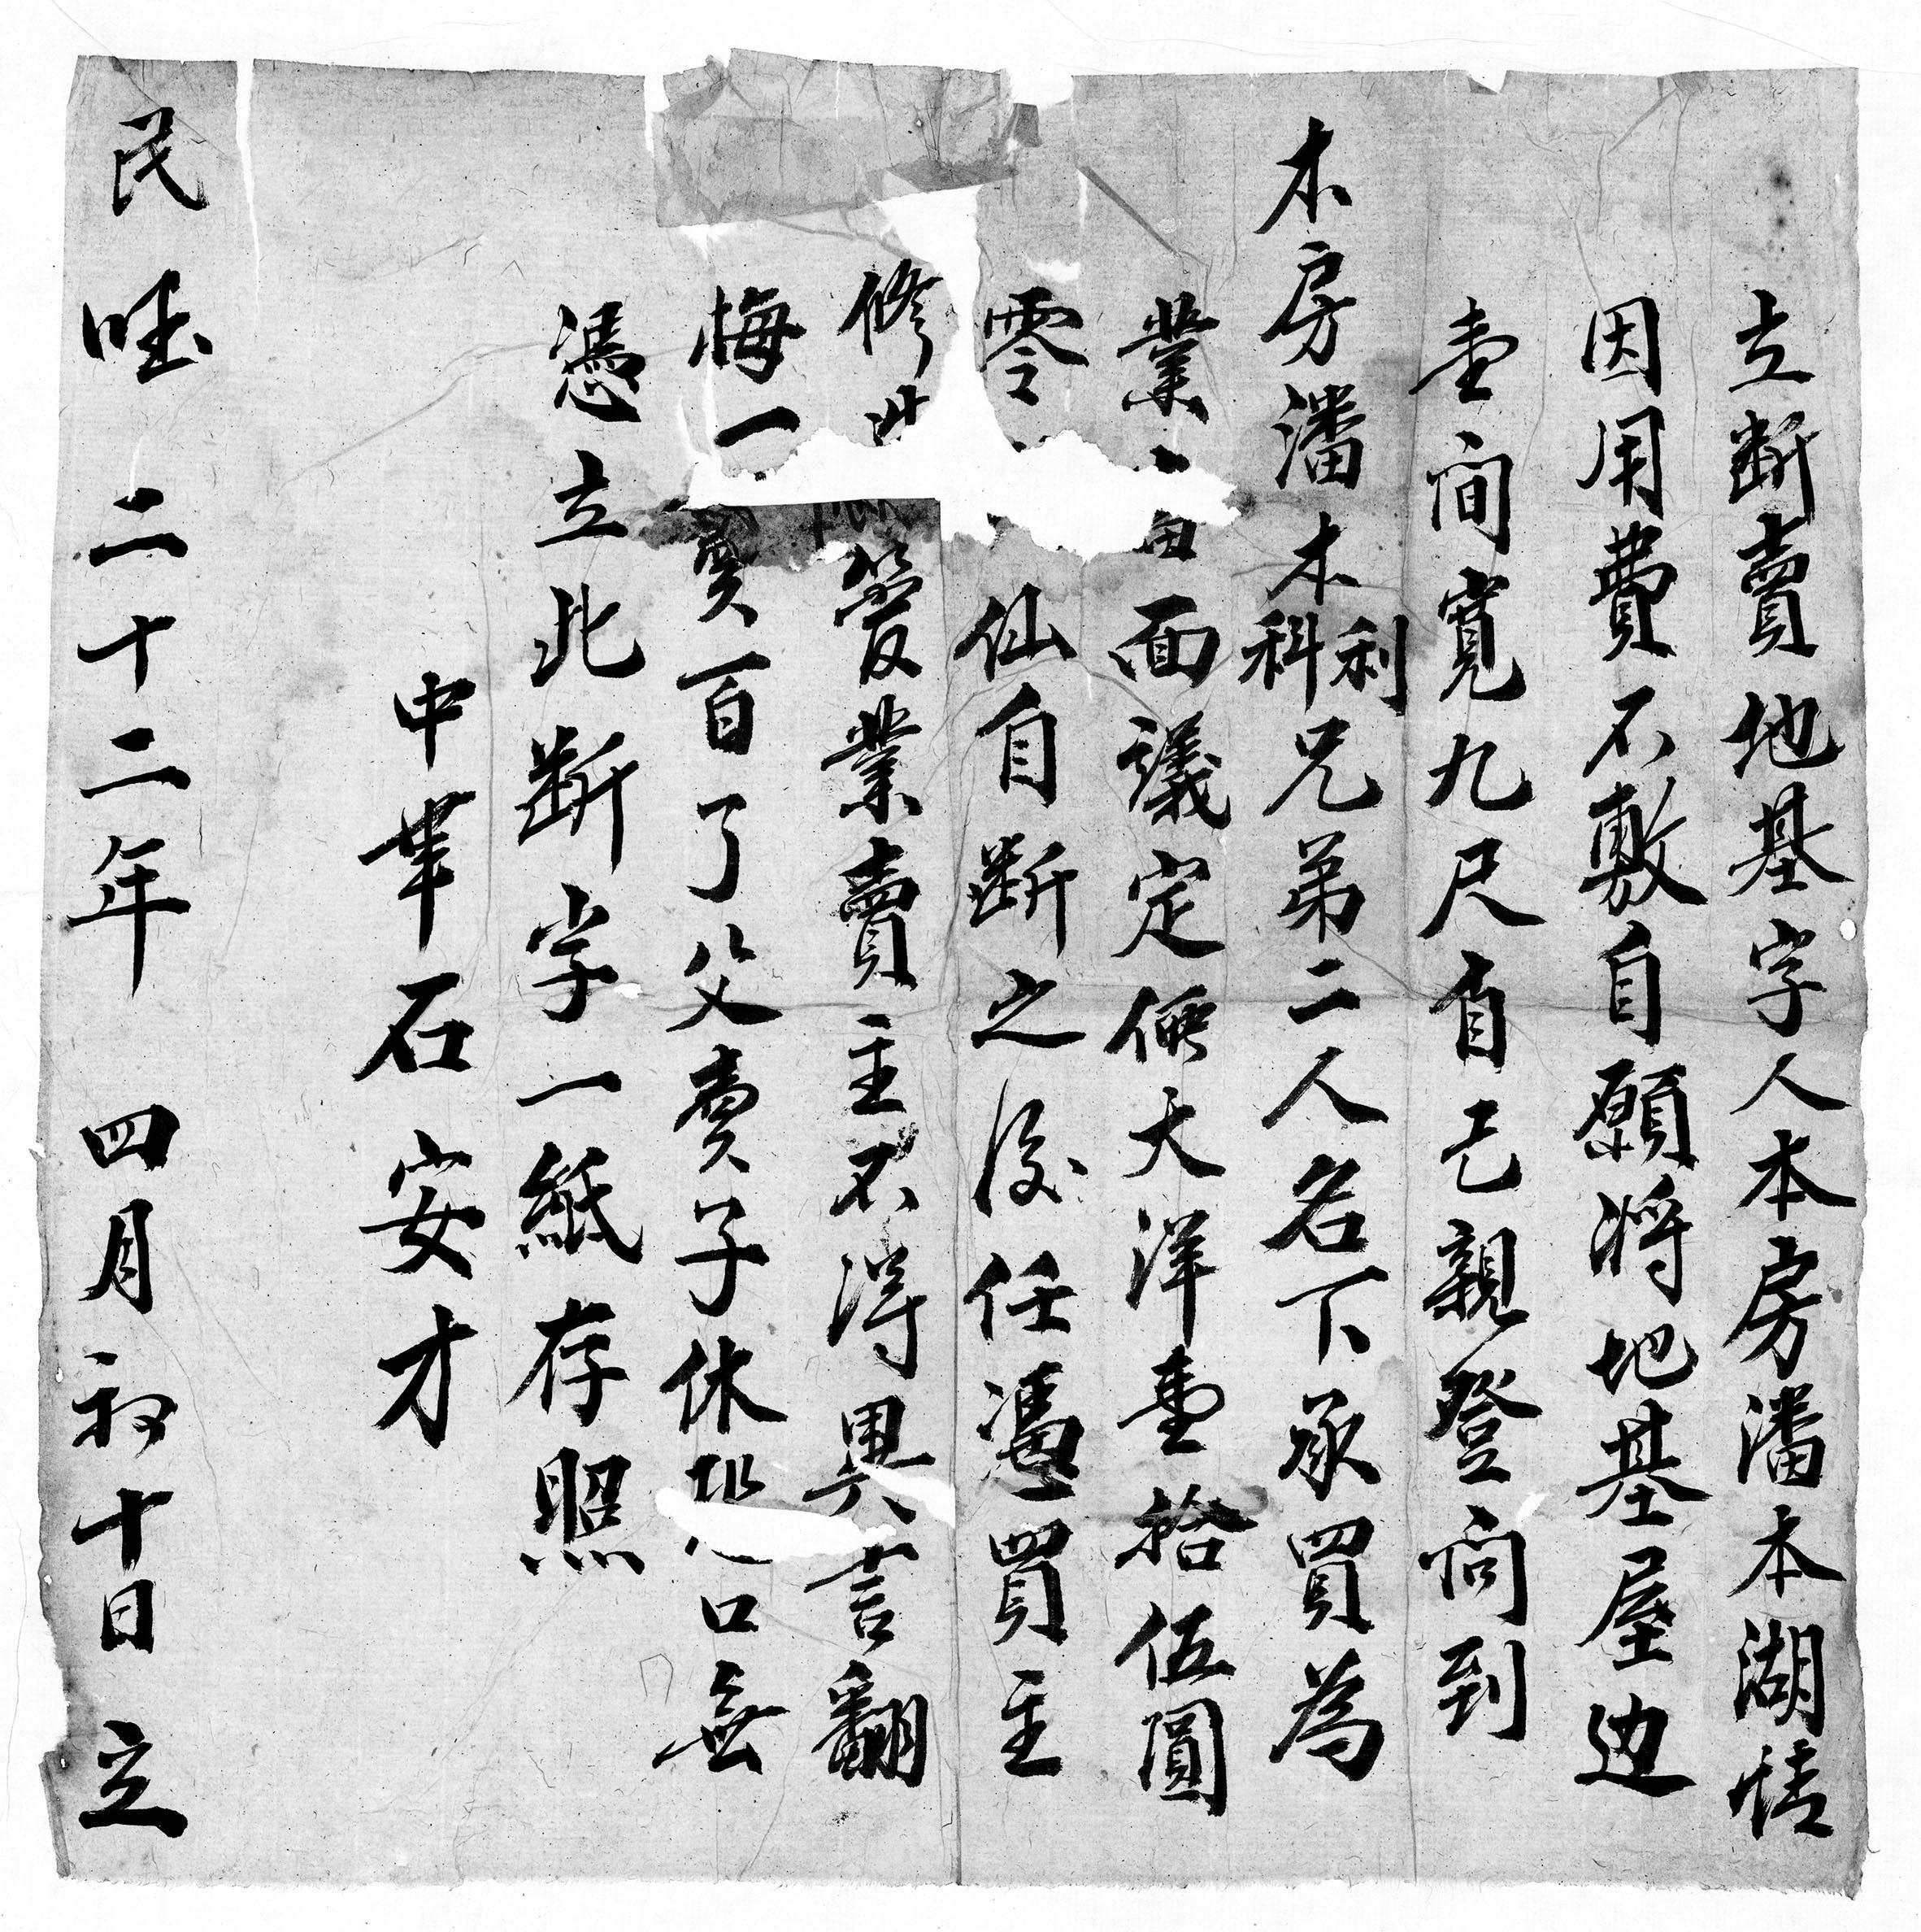 立断賣地基字人本房潘本湖情
因用費不敷自願将地基屋边
壹间寬九尺自己親登问到
本房潘本利科兄弟二人名下承買為
業面議定價大洋壹拾伍圓
零仙自断之後任憑買主
修管業賣主不得異言翻
悔一賣百了父賣子休恐口無
憑立此断字一紙存照
中笔石安才
民国二十二年四月初十日立